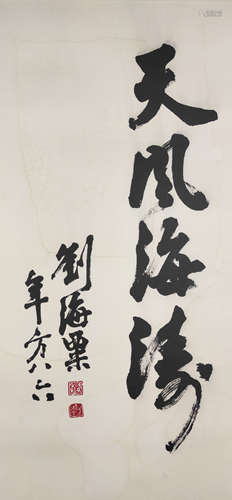 天風海濤
劉海粟
年方八六